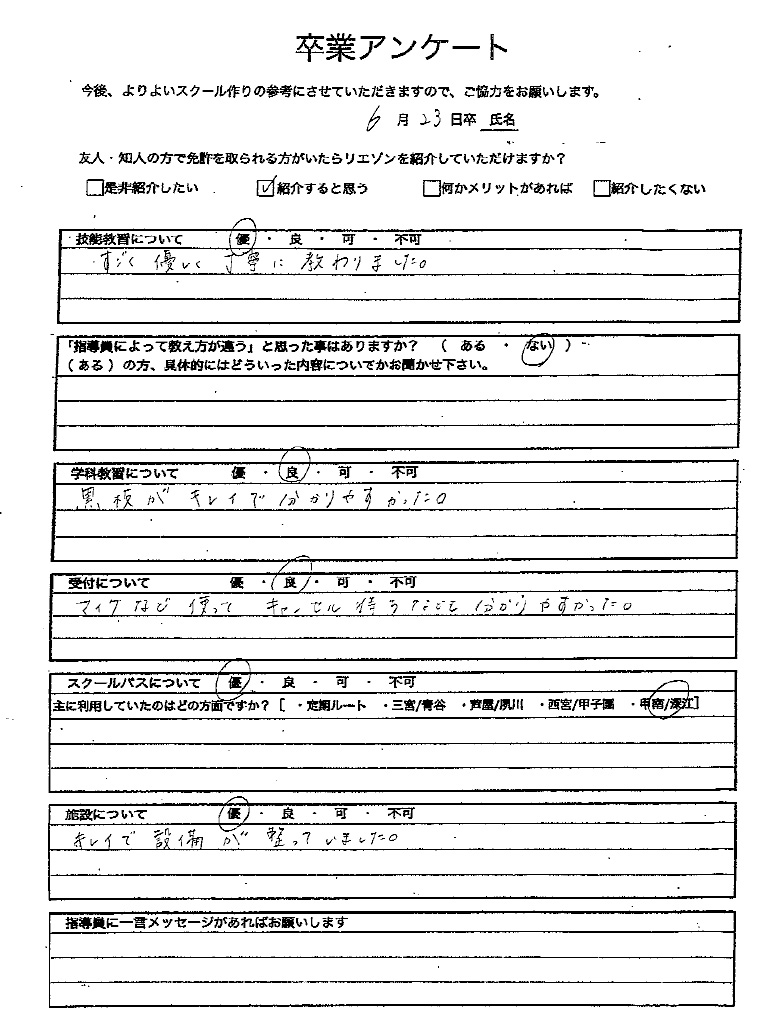 卒業アンケート
今後、よりよいスクール作りの参考にさせていただきますので、ご協力をお願いします。
6 月 23 日卒 氏名
友人・知人の方で免許を取られる方がいたらリエゾンを紹介していただけますか？
□是非紹介したい ☑紹介すると思う □何かメリットがあれば □紹介したくない
技能教習について 優 ・ 良 ・ 可 ・ 不可
すごく優しく丁寧に教わりました。
「指導員によって教え方が違う」と思った事はありますか？ （ ある ・ ない ）
（ある）の方、具体的にはどういった内容についてかお聞かせ下さい。
学科教習について 優 ・ 良 ・ 可 ・ 不可
黒板がキレイで分かりやすかった。
受付について 優 ・ 良 ・ 可 ・ 不可
マイクなど使って キャンセル待ちなども分かりやすかった。
スクールバスについて 優 ・ 良 ・ 可 ・ 不可
主に利用していたのはどの方面ですか？［ ・定期ルート ・三宮/青谷 ・芦屋/夙川 ・西宮/甲子園 ・甲南/深江］
施設について 優 ・ 良 ・ 可 ・ 不可
キレイで設備が整っていました。
指導員に一言メッセージがあればお願いします